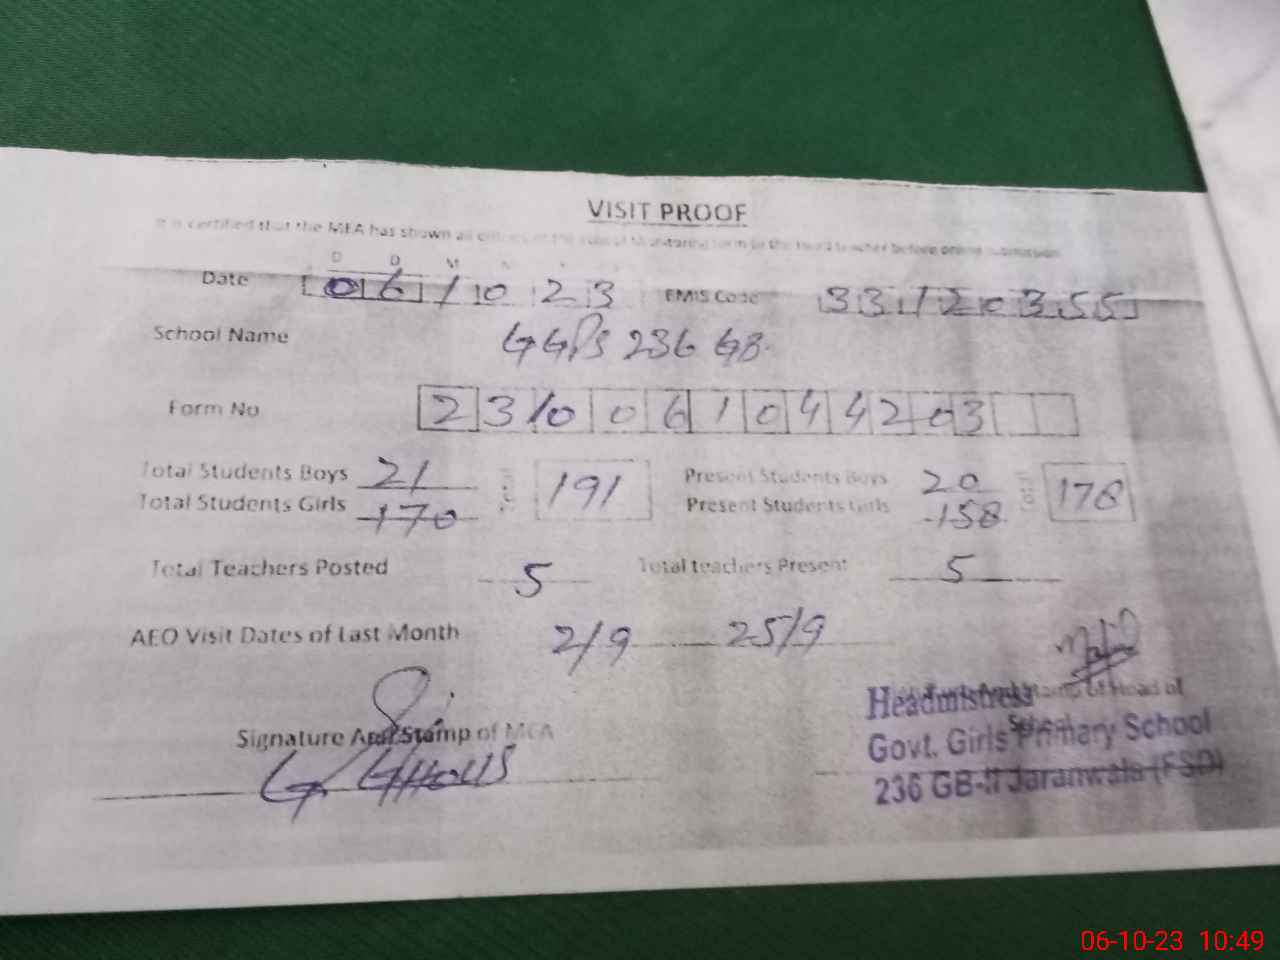 VISIT PROOF
It is certified that the MEA has shown all entries of the school Monitoring form to the head teacher before online submission
D D M
Date 06 10 23 EMIS Code 33120355
School Name GGPS 236 GB.
Form No 2310061044203
Total Students Boys 21 191 Present Students Boys 20 178
Total Students Girls 170 Present Students Girls 158
Total Teachers Posted 5 Total teachers Present 5
AEO Visit Dates of Last Month 2/9 25/9
Signature And Stamp of MEA
Head of
School
Headmistress
Govt. Girls Primary School
236 GB-II Jaranwala (FSD)
06-10-23 10:49